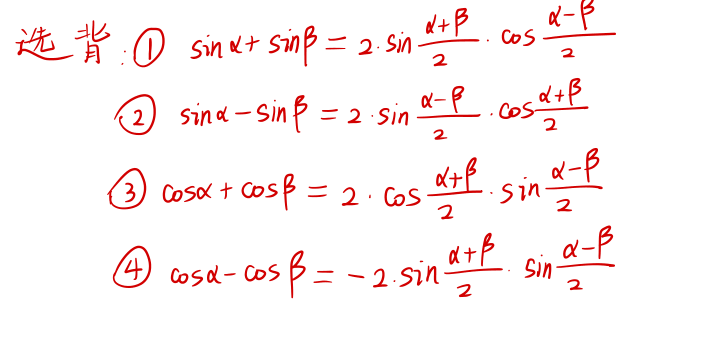 选背:① sinα+sinβ=2·sin (α+β)/2 · cos (α-β)/2
② sinα-sinβ=2·sin (α-β)/2 · cos (α+β)/2
③ cosα+cosβ=2·cos (α+β)/2 · sin (α-β)/2
④ cosα-cosβ=-2·sin (α+β)/2 · sin (α-β)/2